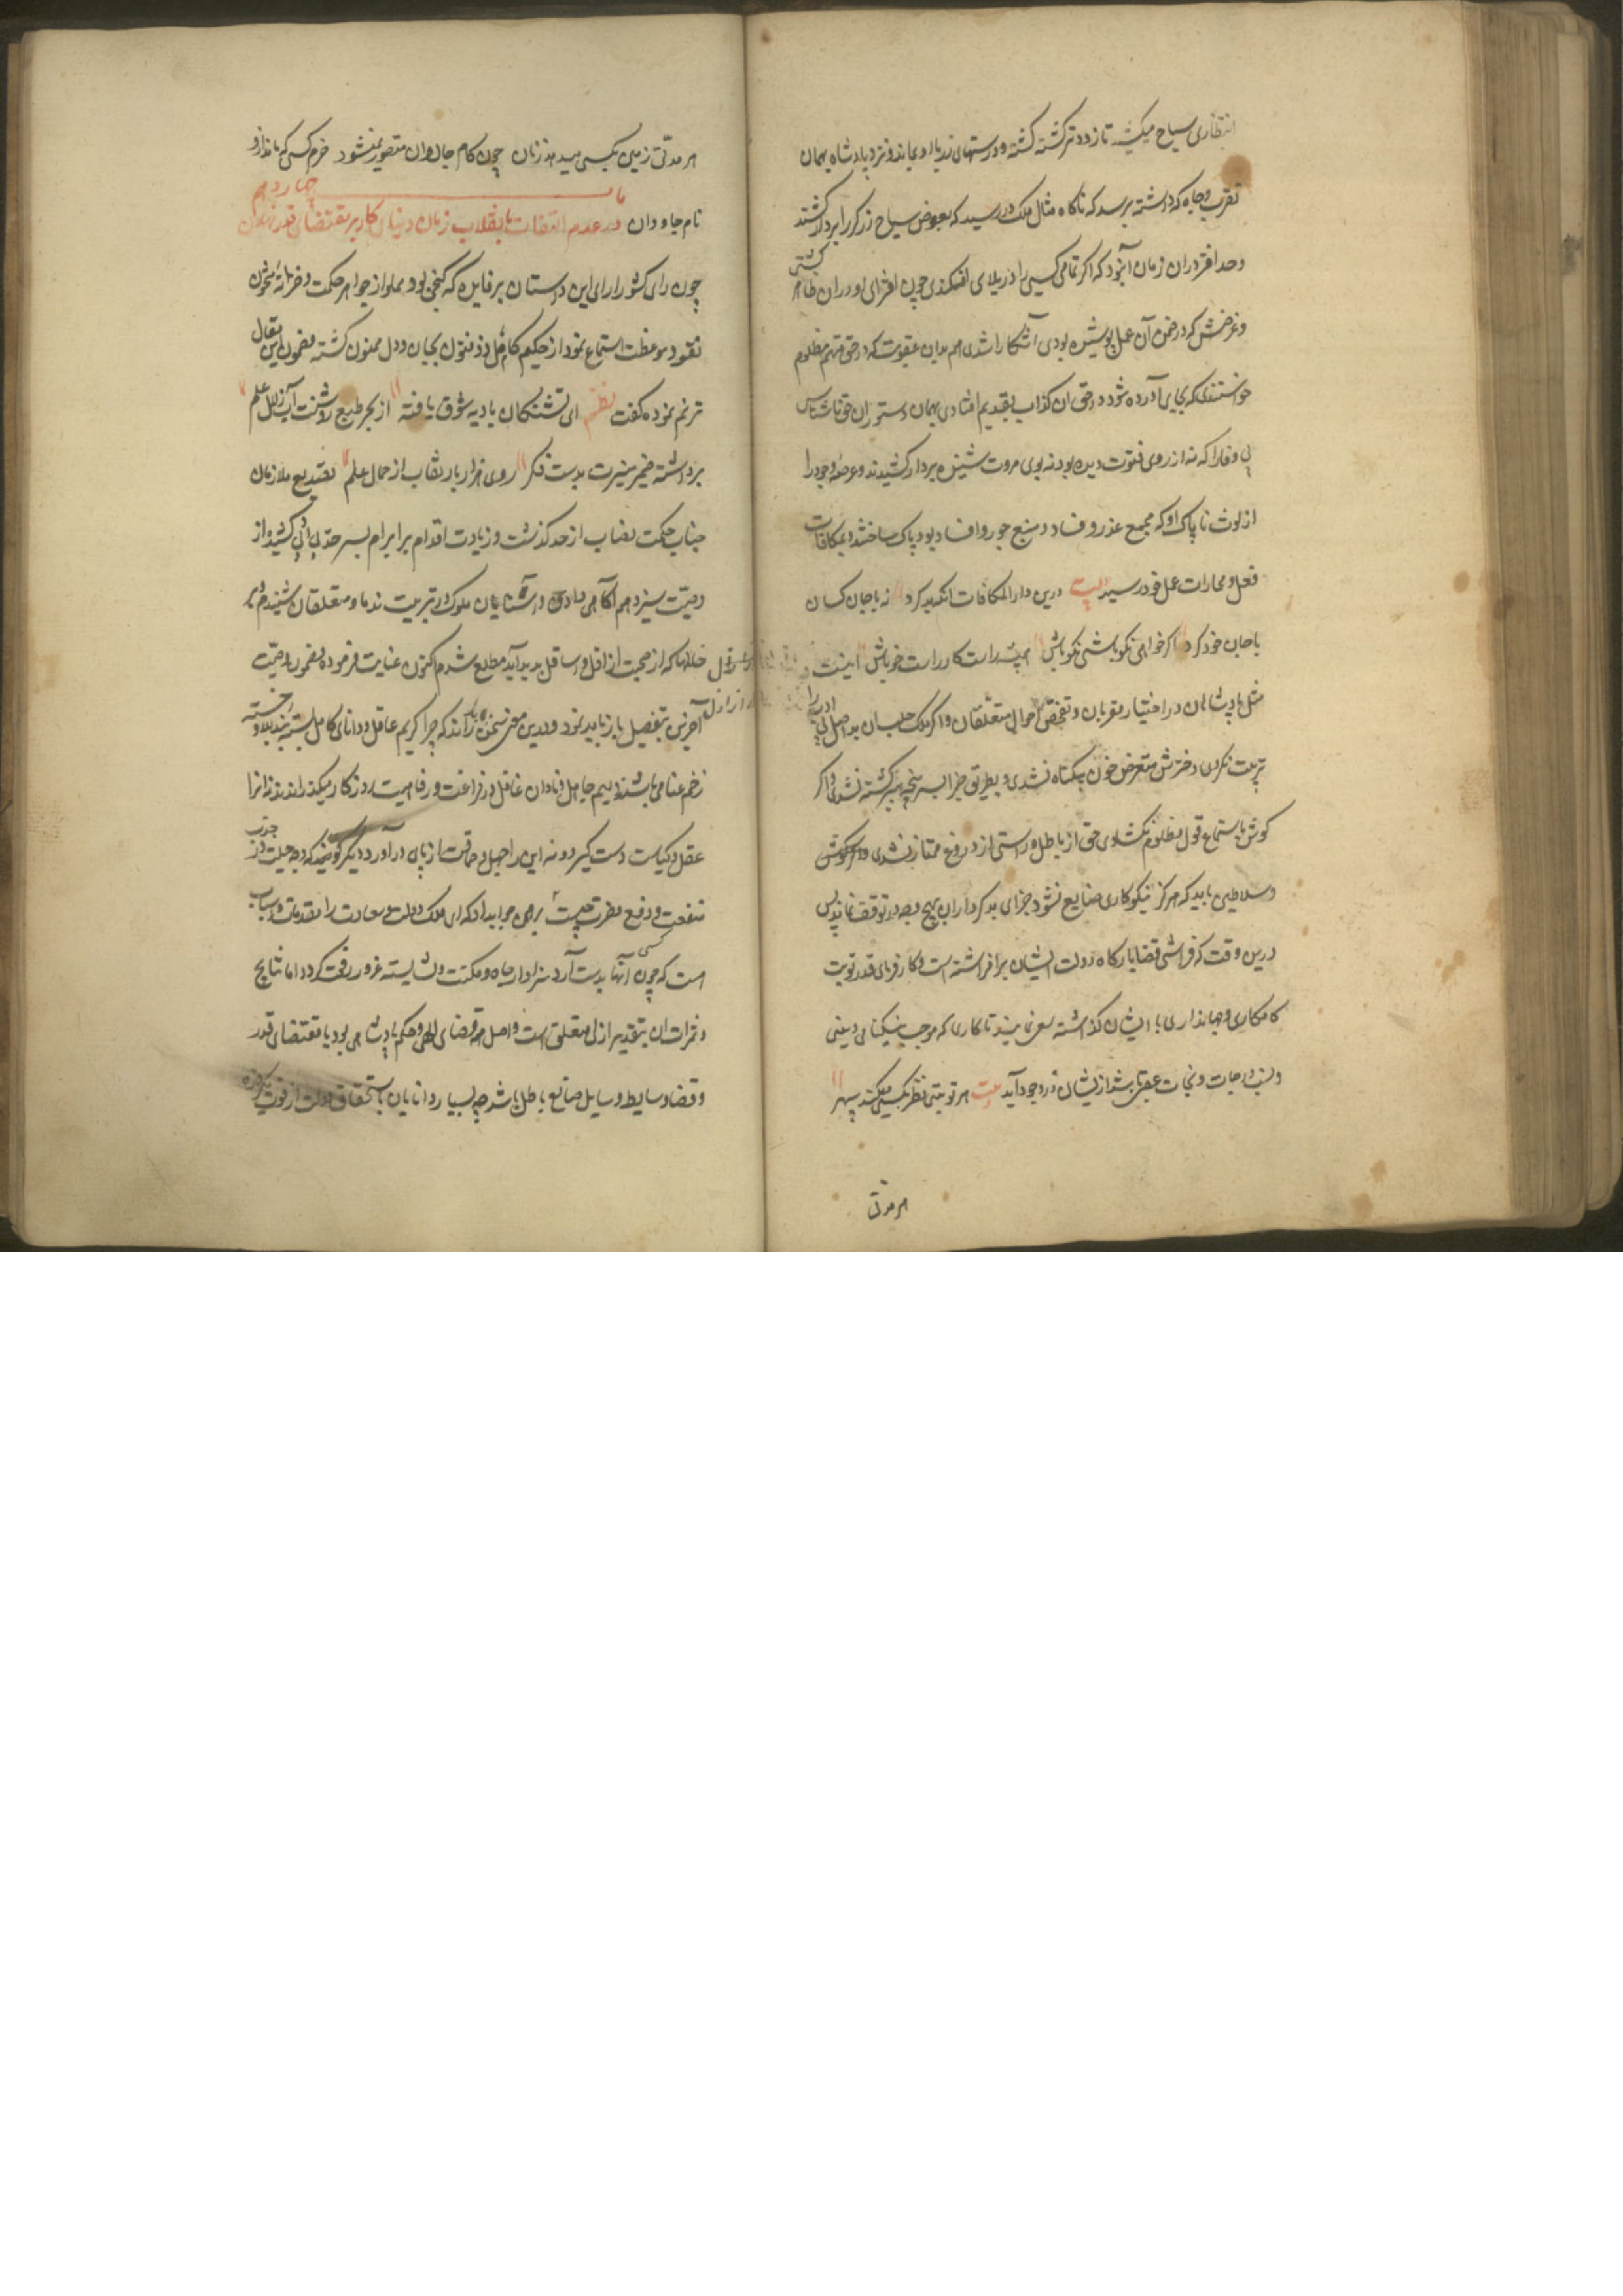 انتظاری سیاح میکشید تا زودتر کشته کشته و درستهای زر با او بماند و نزد پادشاه بهمان
تقرب و جاه که داشته برسد که ناکاه مثال ملک در رسید که بعوض سیاح زرکر را بردار کشند
و حد افتر دران زمان آن بود که اکر تمامی کسی را در بلای افکندی چون افترای او دران ظاهر کشتی
و غرضش که در ضمن آن عمل پوشیده بودی آشکارا شدی هم بدان عقوبت که در حق متهم مظلوم
خواستندی که بجای آورده شود در حق ان کذاب بتقدیم افتادی بهمان دستور ان حق ناشناس
بی وفا را که نه از روی فتوت دیده بود نه بوی مروت شنیده بردار کشیدند و عرصه وجود را
از لوث ناپاک او که مجمع غدر و فساد و منبع جور و افساد بود پاک ساختند و بمکافات
فعل و مجازات عمل خود رسید بیت درین دار المکافات انکه بد کرد نه با جان کسان
با جان خود کرد اکر خواهی نکو باشی نکو باش همیشه راست کار و راست خو باش اینست
مثل پادشاهان در اختیار مقربان و تفحص احوال متعلقان و اکر ملک حلب ان بد اصل بی ادب را
تربیت نکردی دخترش متعرض خون بیکناه نشدی و بطریق جزا بسر پنجه ببر کشته نشدی و اکر
کوش باستماع قول مظلوم نکشادی حق از باطل و راستی از دروغ ممتاز نشدی
و سلاطین باید که هرکز نیکوکاری ضایع نشود و جزای بدکرداران بهیچ وجه در توقف نماند پس
درین وقت که فراش قضا بارکاه دولت ایشان برافراشته است و کارفرمای قدر نوبت
کامکاری و جهانداری با ایشان کذاشته سعی نمایند تا کاری که موجب نیکنامی دنیی
و سبب درجات و نجات عقبی باشد ازیشان در وجود آید بیت هر نوبتی نظر بکسی میکند سپهر
هر مدتی
هر مدتی زمین بکسی میدهد زمان چون کام جاودان متصور نمیشود خرم کسی که ماند ازو
باب چهاردهم
نام جاودان در عدم التفات بانقلاب زمان و بنای کار بر مقتضای قدر نهادن
چون رای کشورارای این داستان پر فایده که کنجی بود مملو از جواهر حکمت و خزانه مشحون
نقود موعظت استماع نمود از حکیم کامل ذو فنون بجان و دل ممنون کشته مضمون این مقال
ترنم نموده کفت نظم ای تشنکان بادیه شوق یافته از بحر طبع روشنت آب زلال علم
برداشته ضمیر منیرت بدست فکر روی هزار بار نقاب از جمال علم تصدیع ملازمان
جناب حکمت نصاب از حد کذشت و زیادت اقدام بر ابرام بسر حد بی ادبی کشید و از
وصیت سیزدهم آکاهی دادی و آشنایان ملوک در تربیت ندما و متعلقان شنیدم و بر
خللها که از صحبت اراذل و اسافل پدید آید مطلع شدم اکنون عنایت فرموده مضمون وصیت
آخرین بتفصیل باز باید نمود و درین معنی سخن راند که چرا کریم عاقل و دانای کامل بسته بند بلا و خسته
زخم عنا می باشند و لییم جاهل و نادان غافل در فراغت و رفاهیت روزکار میکذراند نه انرا
عقل و کیاست دست کیرد و نه این را جهل و حماقت از پای درآورد دیکر کویند که وجه حیلت در جذب
منفعت و دفع مضرت چیست برهمن جواب داد که ای ملک دولت و سعادت را مقدمات و اسباب
است که چون کسی آنها بدست آرد سزاوار جاه و مکنت و شایسته عز و رفعت کردد اما نتایج
و ثمرات ان بتقدیر ازلی متعلق است و اصل همه قضای الهی و حکم پادشاهی بود بمقتضای قدر
و قضا وسایط و وسایل ضایع و باطل باشد چه بسیار دانایان باستحقاق دولت از قوت یکروزه